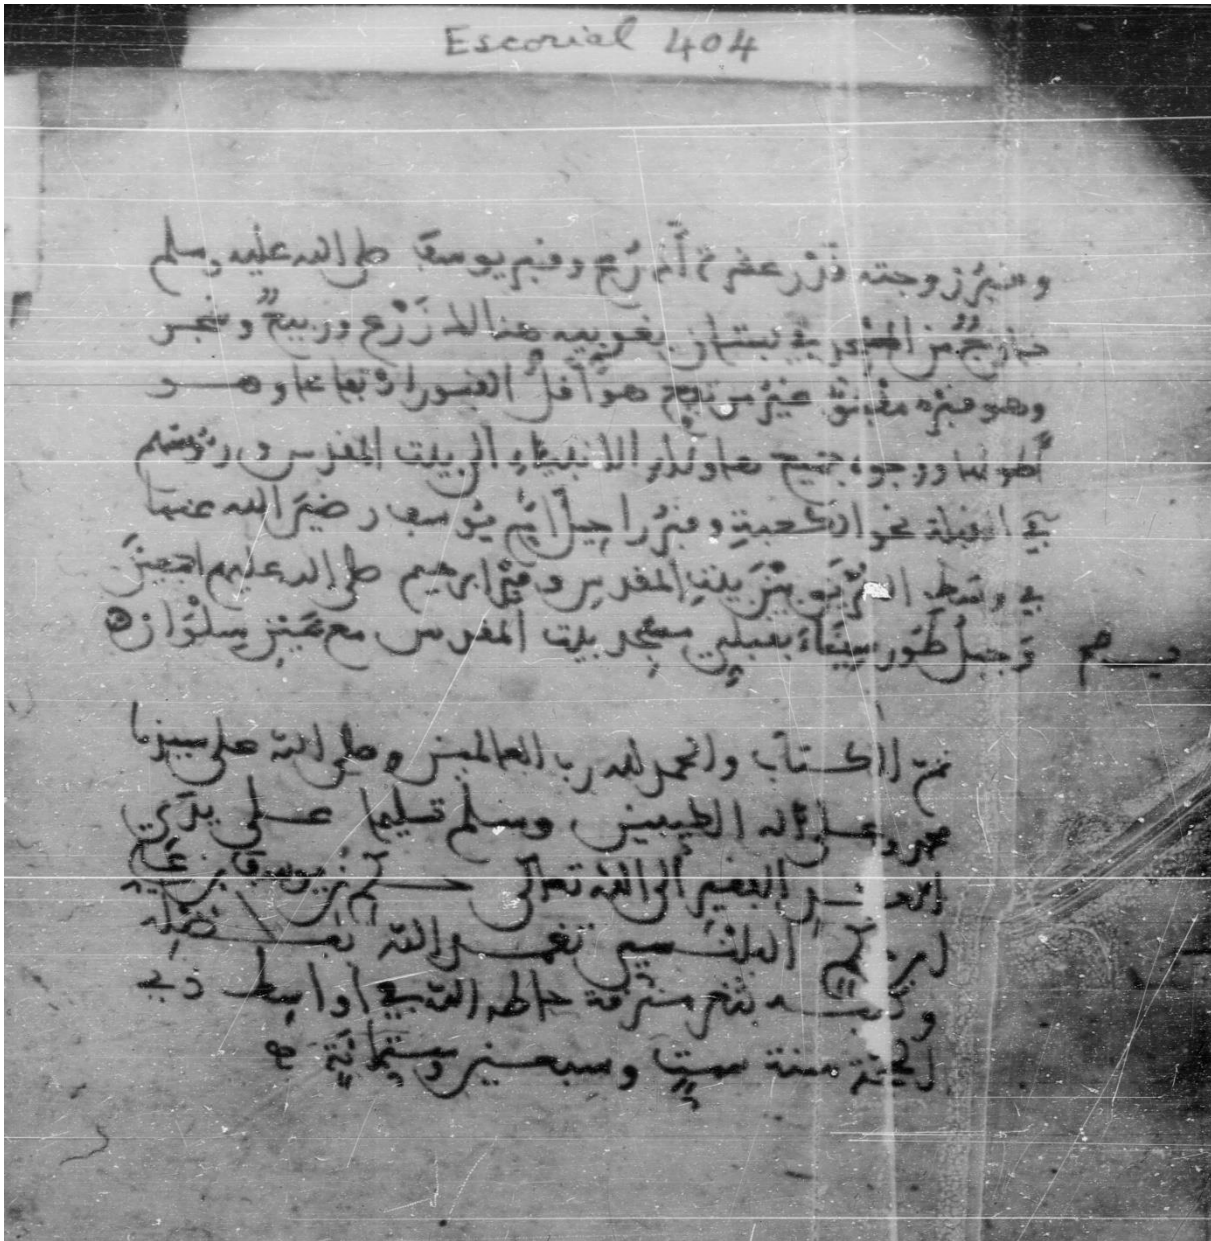 Escorial 404
وقبر زوجته قدر عشرة أذرع وقبر يوسف صلى الله عليه وسلم
خارج من في بستان بغربيه هنالك زرع وربيع وشجر
وهو قبره غير مرتفع هو أقل القبور ارتفاعا وهو
أطولها ووجوه جميع هاولاء الانبياء الى بيت المقدس ورءوسهم
في القبلة نحو الكعبة وقبر راحيل أم يوسف رضي الله عنها
في وسط بين بيت المقدس وقبر ابرهيم صلى الله عليهم اجمعين
وجبل طور سيناء بقبلي مسجد بيت المقدس مع عين سلوان
تم الكتاب والحمد لله رب العالمين وصلى الله على سيدنا
محمد وعلى اله الطيبين وسلم تسليما على يدي
العبد الفقير الى الله تعالى حكم بن يوسف بن
ابن حكم تغمده الله بفضله
وكتبه بثغر حاطه الله في اواسط ذي
الحجة سنة ست وسبعين وستماية